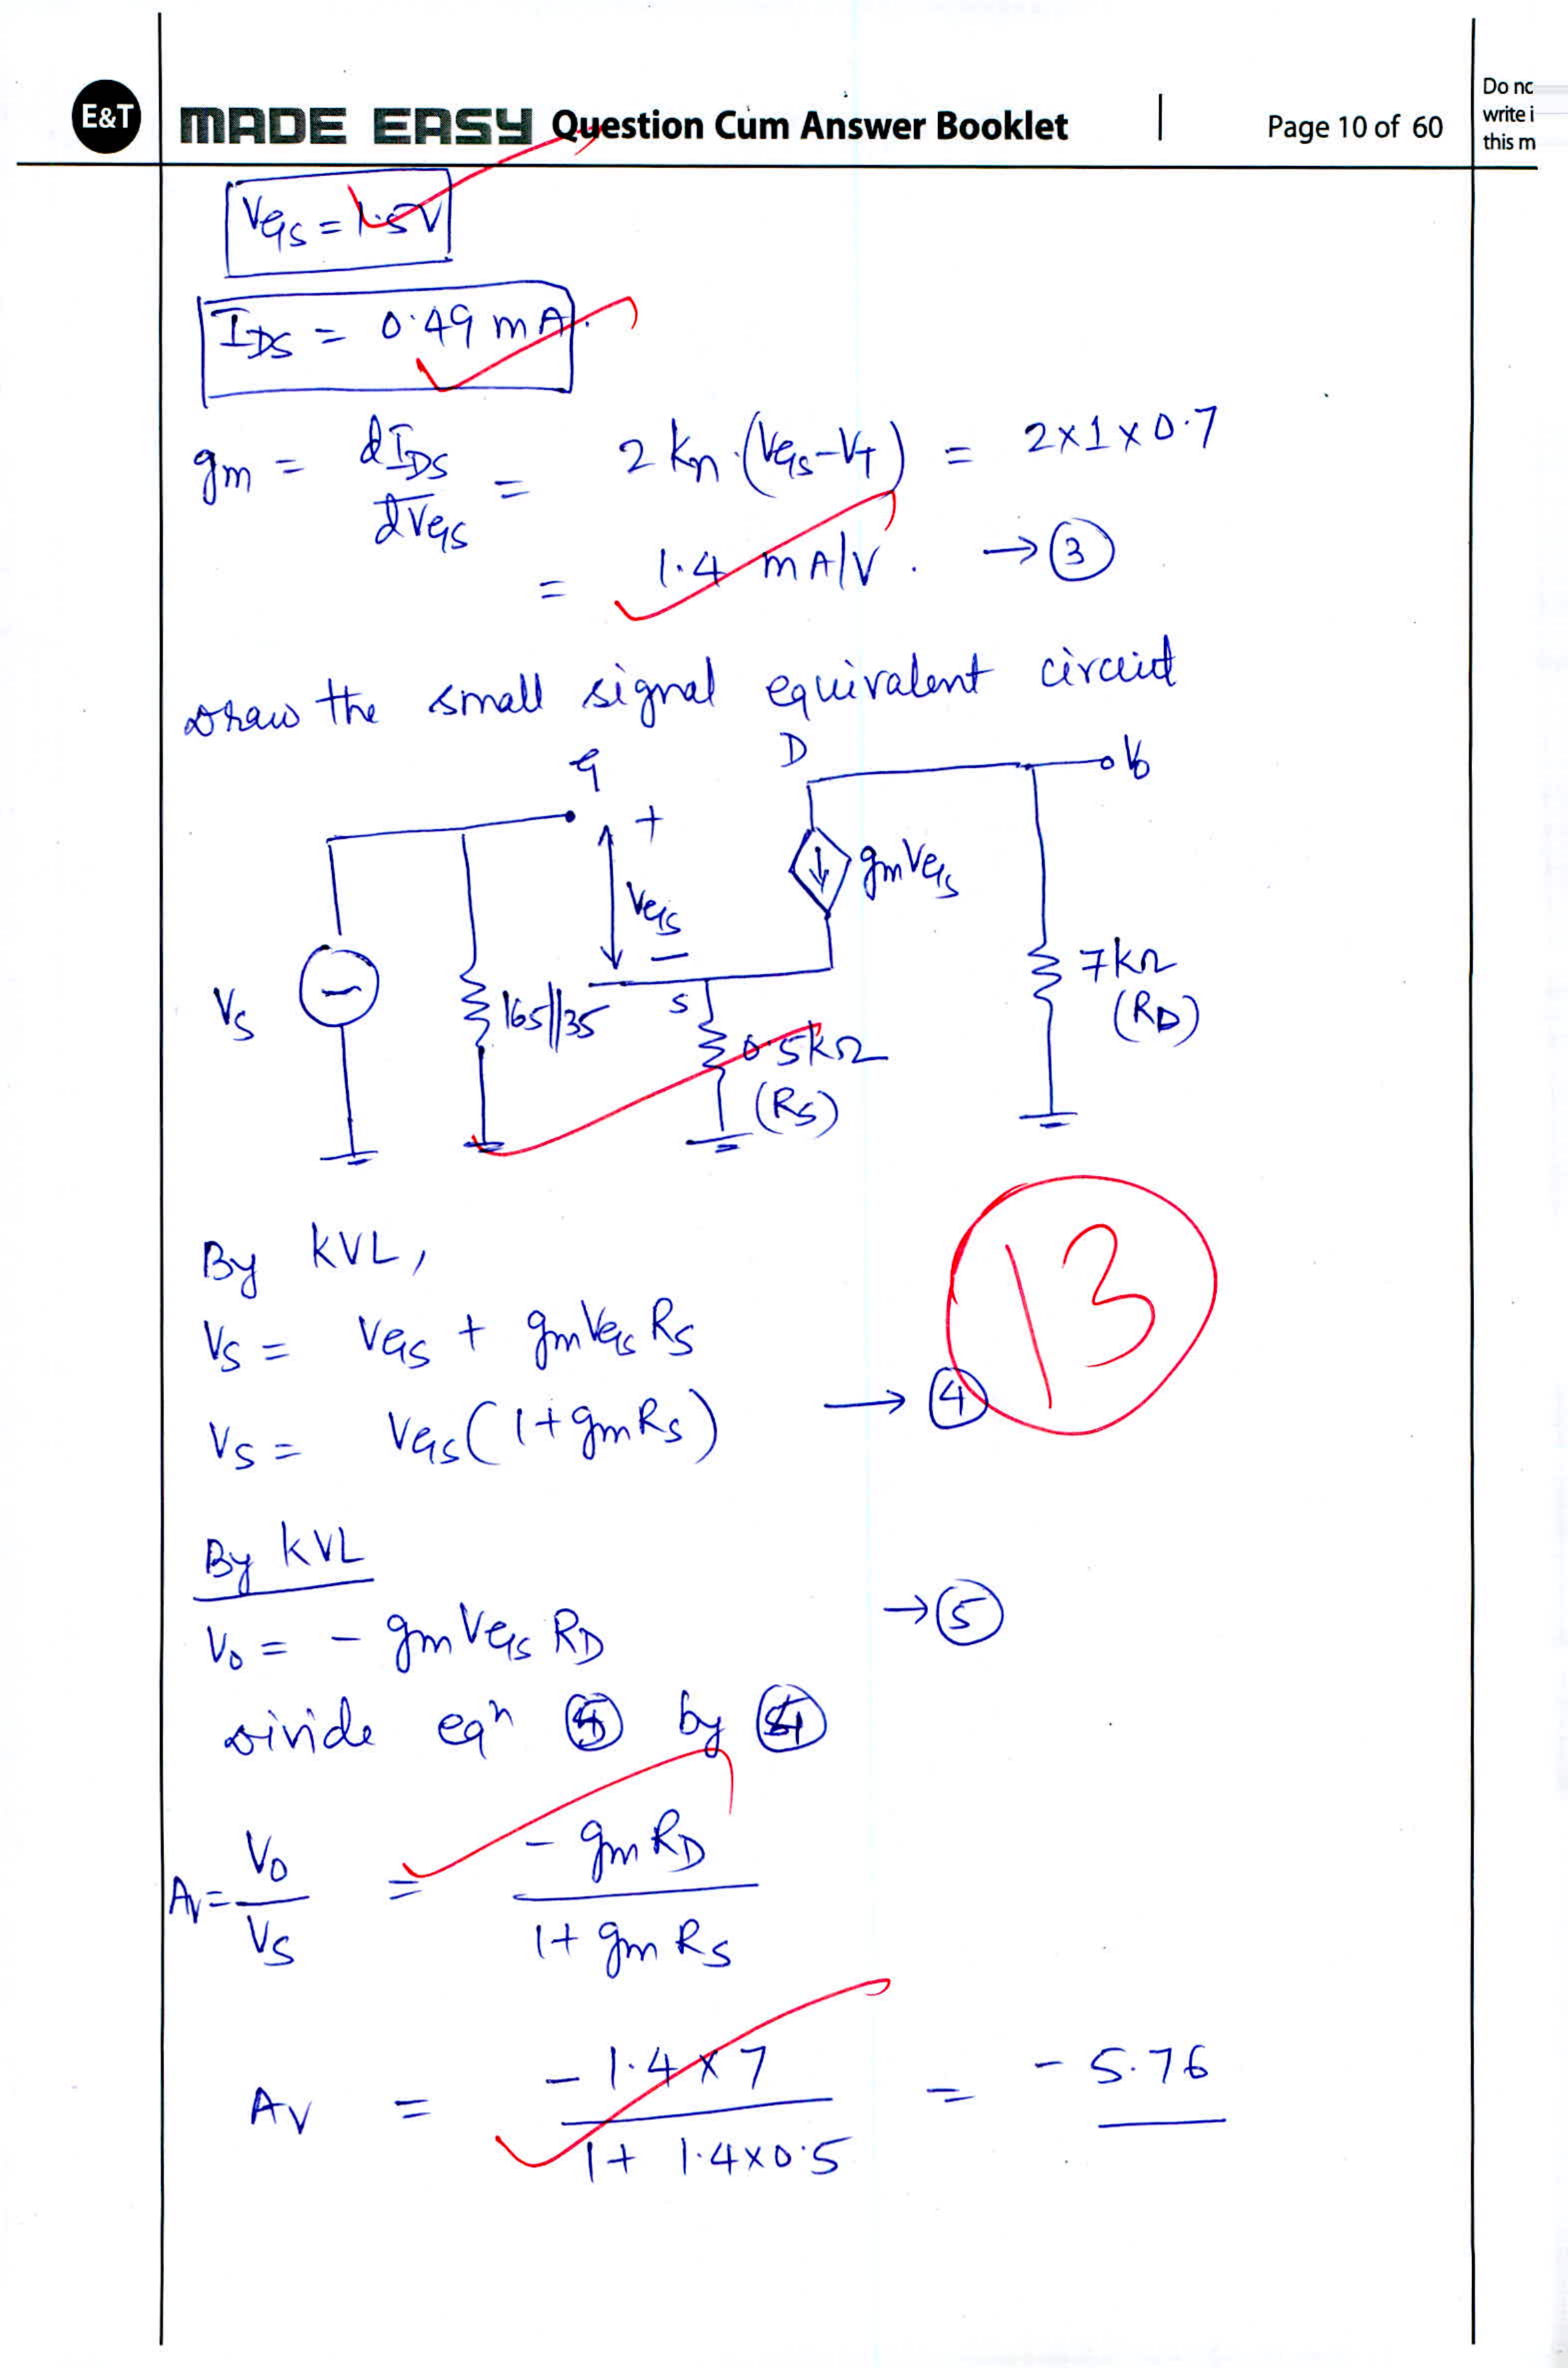 E&T MADE EASY Question Cum Answer Booklet | Page 10 of 60
Do no
write i
this m
VGS = 1.5V
IDS = 0.49 mA.
gm = dIDS/dVGS = 2 kn.(VGS-VT) = 2x1x0.7
= 1.4 mA/V. → ③
Draw the small signal equivalent circuit
G
D
Vo
+
gmVGS
VGS
−
Vs
165||35
S
0.5kΩ
(RS)
7kΩ
(RD)
By KVL,
Vs = VGS + gmVGS RS
Vs = VGS(1+gmRS) → ④
13
By KVL
Vo = - gmVGS RD → ⑤
Divide eqn ⑤ by ④
Av = Vo/Vs = - gmRD / 1+ gm RS
Av = -1.4x7 / 1+ 1.4x0.5 = - 5.76